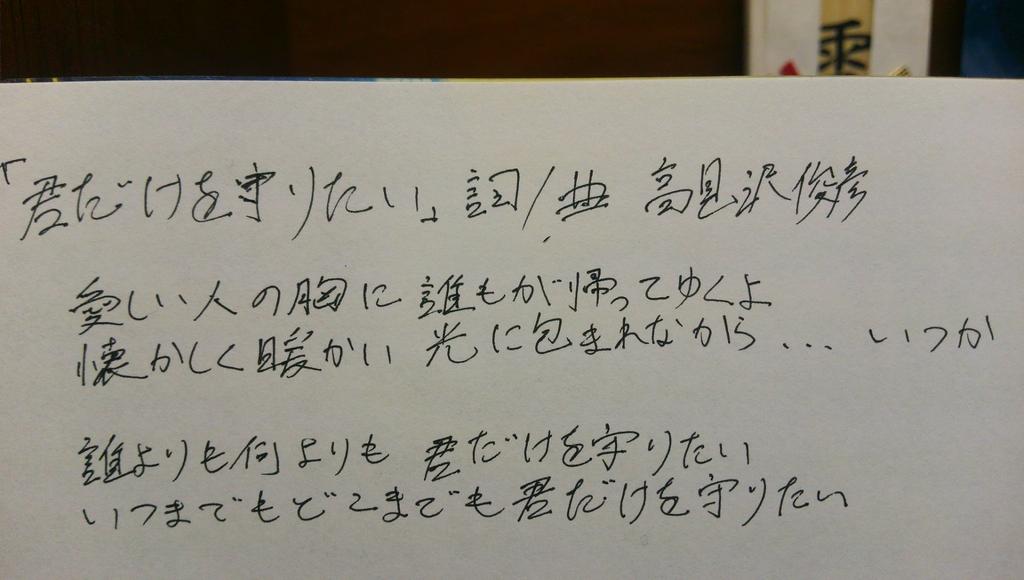 「君だけを守りたい」詞/曲 高見沢俊彦
愛しい人の胸に 誰もが帰ってゆくよ
懐かしく暖かい 光に包まれながら... いつか
誰よりも何よりも 君だけを守りたい
いつまでもどこまでも君だけを守りたい